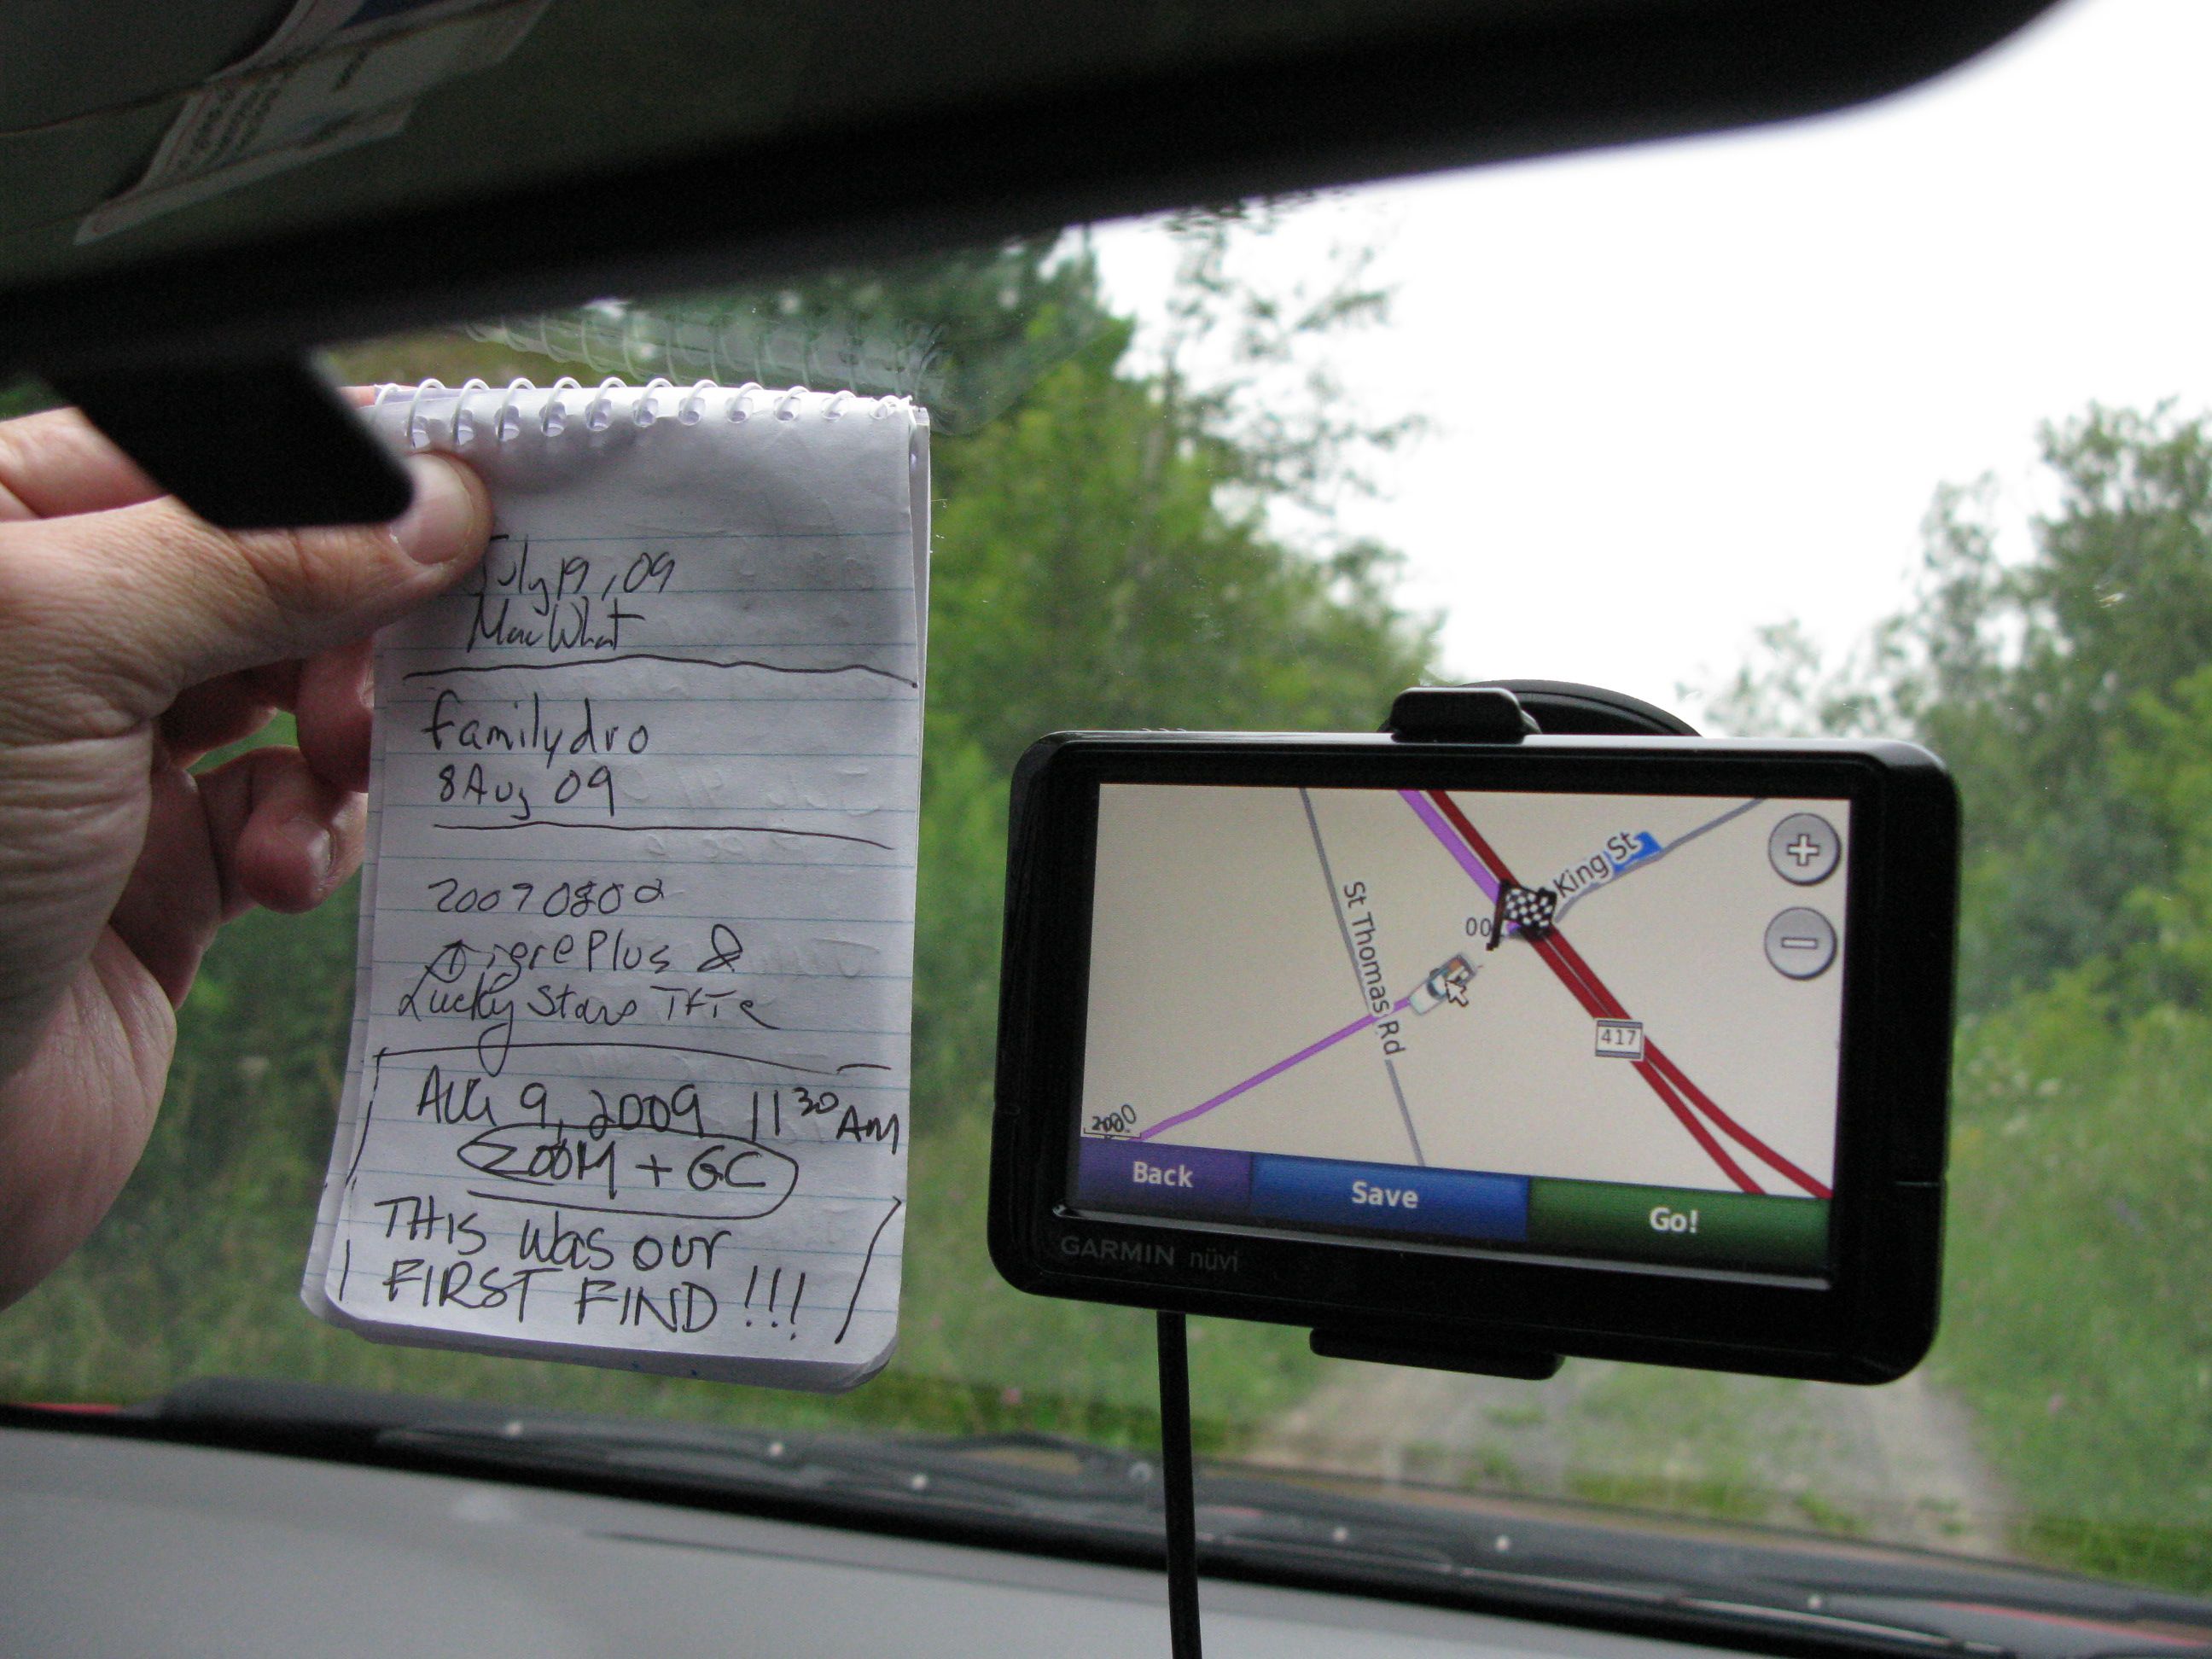 July 19, 09
MacWhat
familydro
8 Aug 09
Plus &
Lucky Stars TFTC
AUG 9, 2009 11 30 AM
ZOOM + GC
THIS WAS OUR
FIRST FIND !!!
King St
St Thomas Rd
00
417
200
Back
Save
Go!
GARMIN nüvi